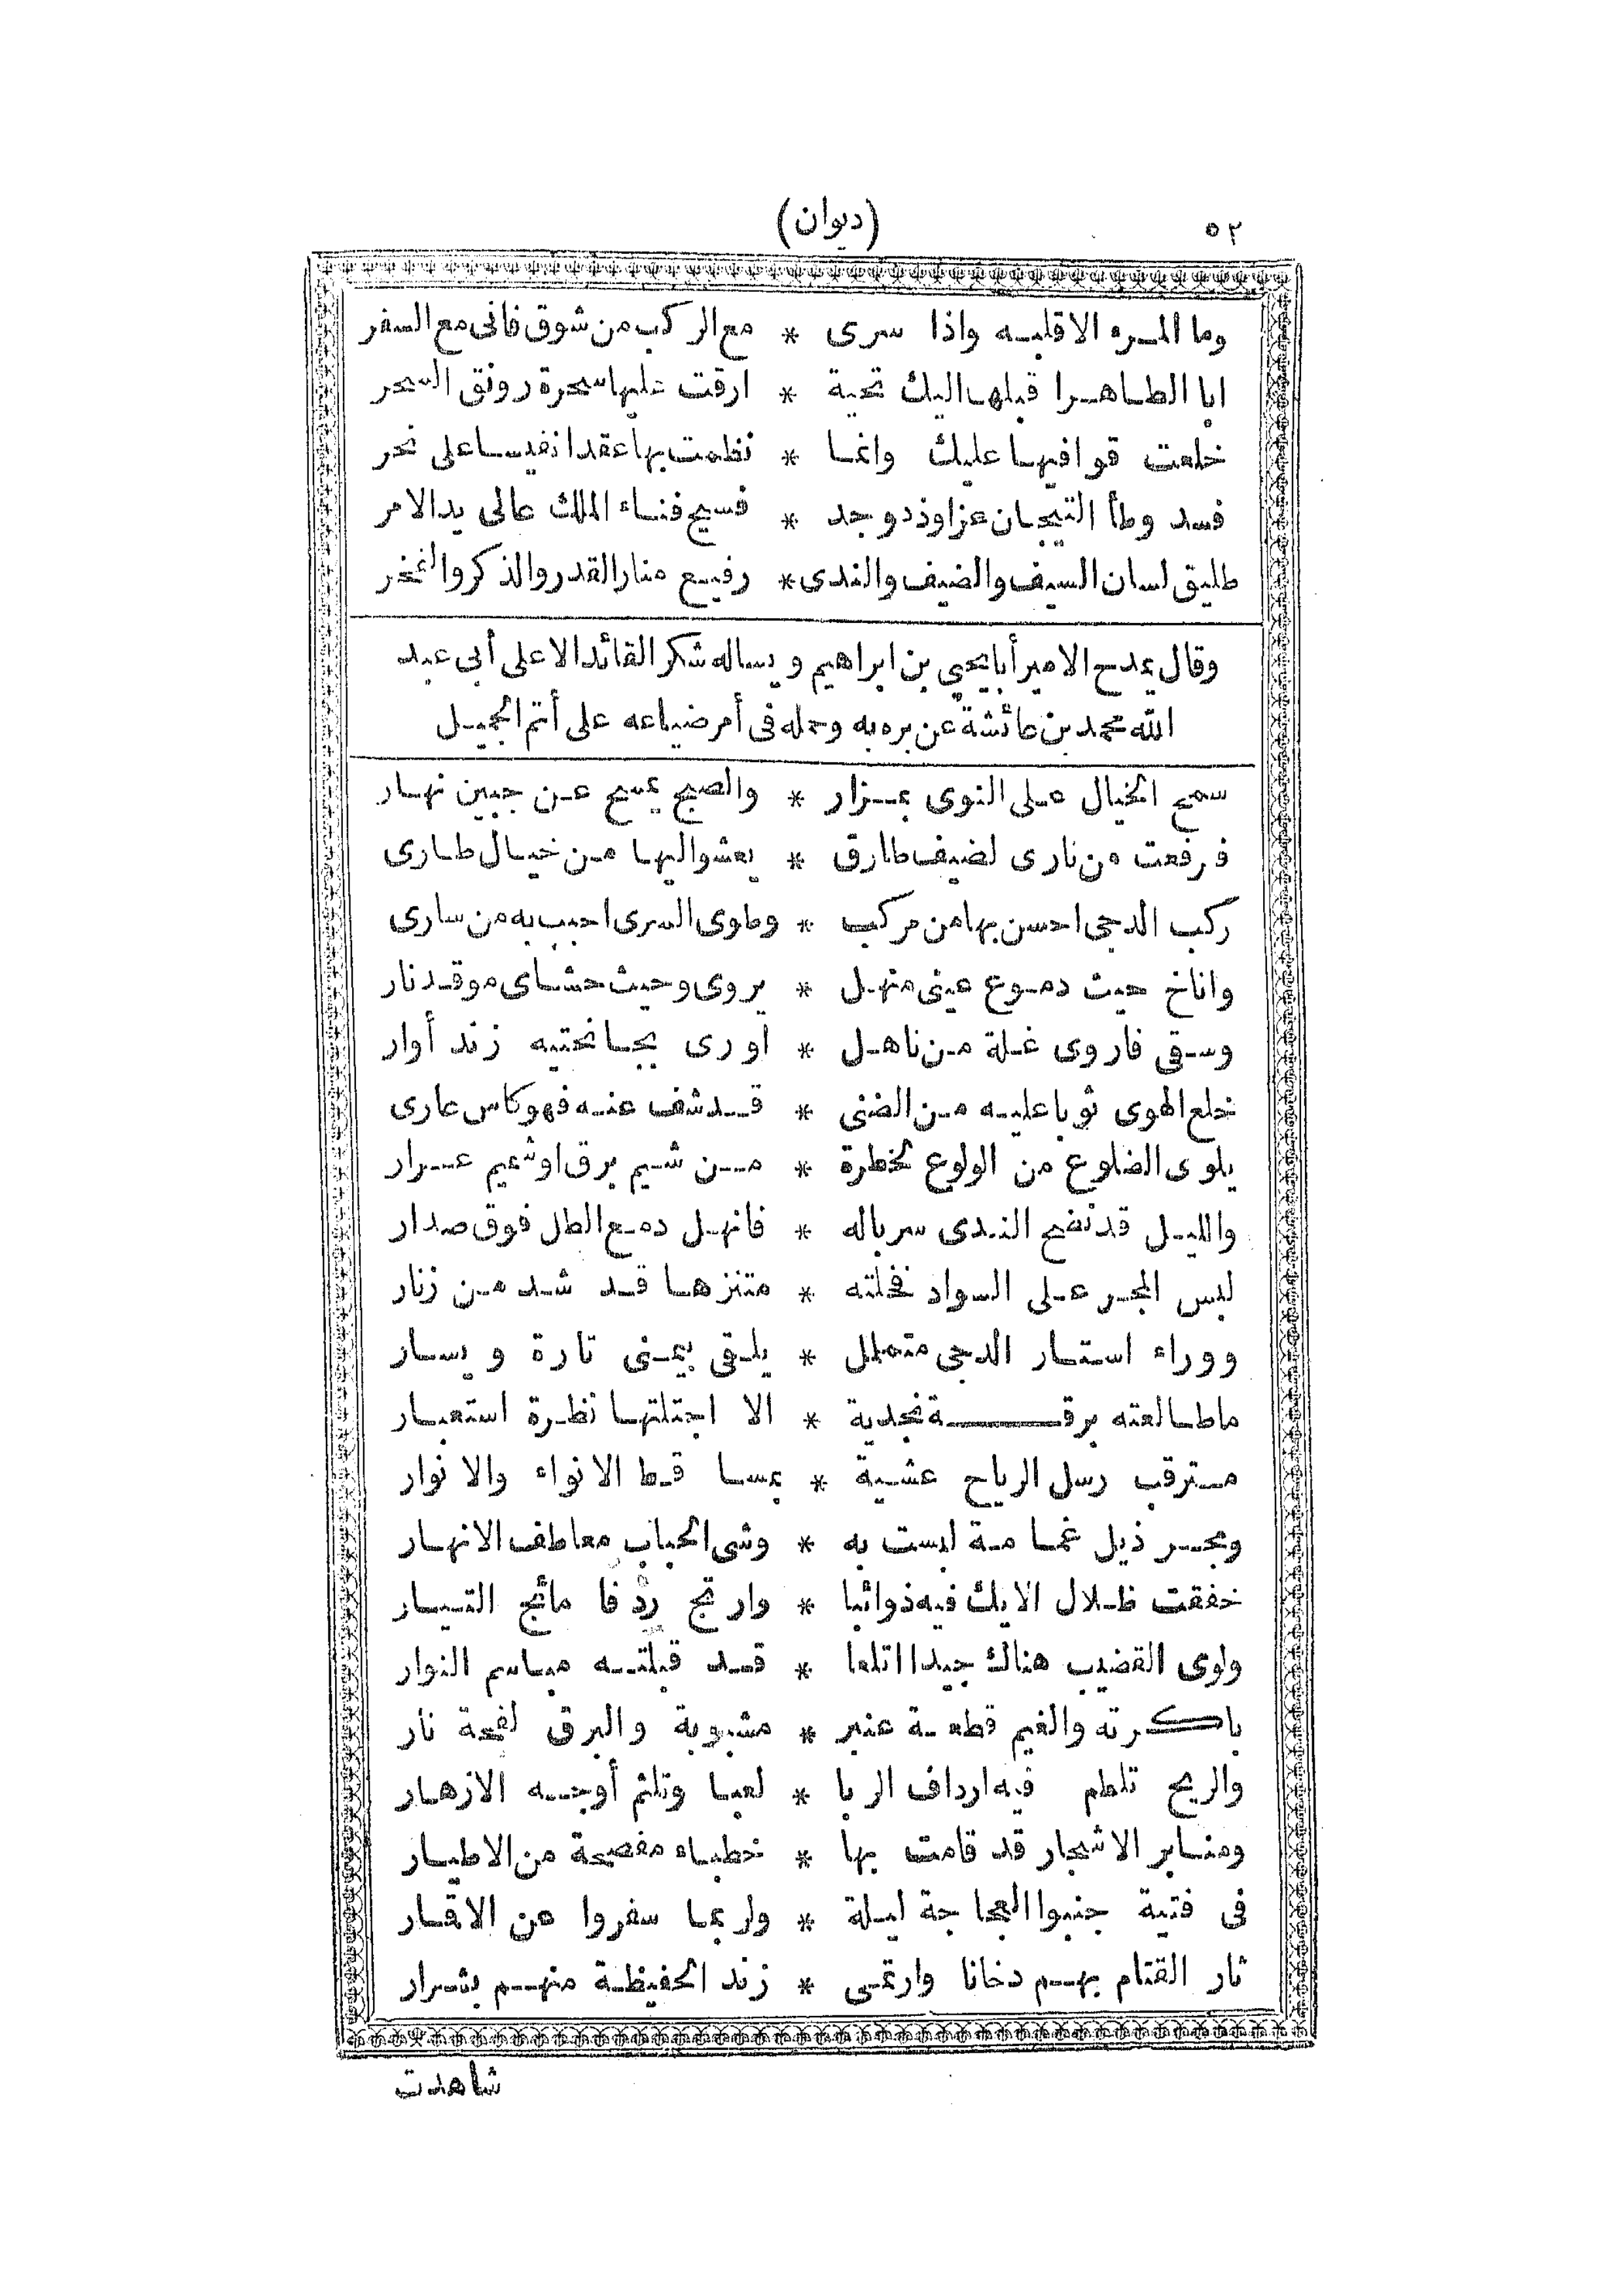 ٥٢
(ديوان)
وما المرء الا قلبه واذا سرى * مع الركب من شوق فانى مع السفر
ابا الطاهرا قبلها اليك تحية * ارقت عليها سحرة رونق السحر
خلعت قوافيها عليك وانما * نظمت بها عقدا نفيسا على نحر
فسد وطأ التيجان عزا وذد وجد * فسيح فناء الملك عالى يد الامر
طليق لسان السيف والضيف والندى * رفيع منار القدر والذكر والفخر
وقال يمدح الامير أبا يحيى بن ابراهيم ويساله شكر القائد الاعلى أبى عبد
الله محمد بن عائشة عن بره به وحمله فى أمر ضياعه على أتم الجميل
سمح الخيال على النوى بمزار * والصبح يمسح عن جبين نهار
فرفعت من نارى لضيف طارق * يعشو اليها من خيال طارى
ركب الدجى احسن بها من مركب * وطوى السرى احبب به من سارى
واناخ حيث دموع عينى منهل * يروى وحيث حشاى موقد نار
وسقى فاروى غلة من ناهل * اورى بجانحتيه زند أوار
خلع الهوى ثوبا عليه من الضنى * قد شف عنه فهو كاس عارى
يلوى الضلوع من الولوع لخطرة * من شيم برق او شميم عرار
والليل قد نضح الندى سرباله * فانهل دمع الطل فوق صدار
لبس المجر على السواد فخلته * متنزها قد شد من زنار
ووراء استار الدجى متململ * يلقى بيمنى تارة ويسار
ما طالعته برقة نجدية * الا اجتلتها نظرة استعبار
مترقب رسل الرياح عشية * بمساقط الانواء والانوار
ومجر ذيل غمامة لبست به * وشى الحباب معاطف الانهار
خفقت ظلال الايك فيه ذوائبا * وارتج ردفا مائج التيار
ولوى القضيب هناك جيدا اتلعا * قد قبلته مباسم النوار
باكرته والغيم قطعة عنبر * مشبوبة والبرق لفحة نار
والريح تلطم فيه ارداف الربا * لعبا وتلثم أوجه الازهار
ومنابر الاشجار قد قامت بها * خطباء مفصحة من الاطيار
فى فتية جنبوا العجاجة ليلة * ولربما سفروا عن الاقمار
ثار القتام بهم دخانا وارتمى * زند الحفيظة منهم بشرار
شاهدت